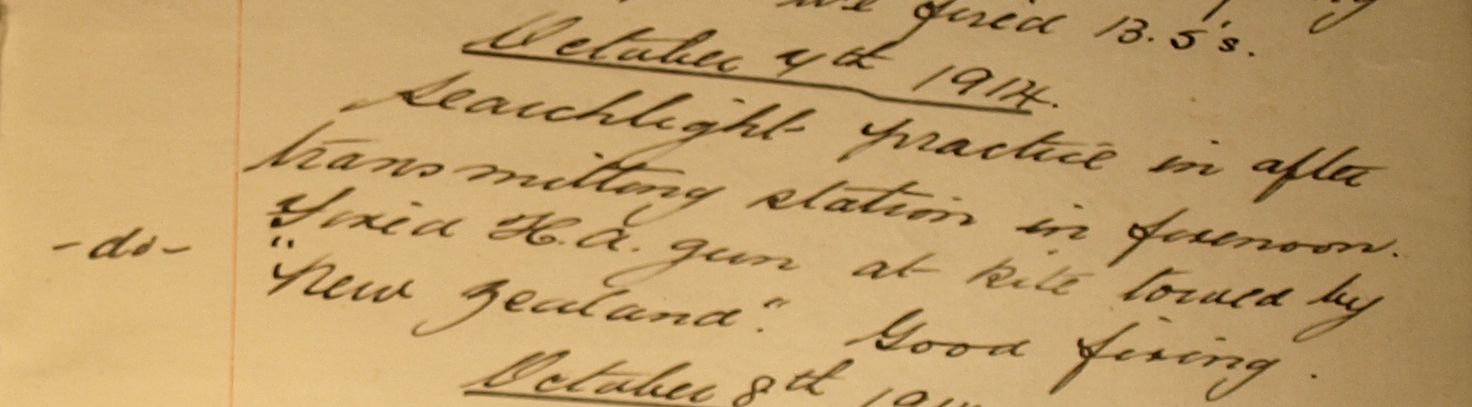 we fired 13.5's.
October 4th 1914.
Searchlight practice in after
transmitting station in forenoon.
Fired H.A. gun at kite towed by
-do-
"New Zealand". Good firing.
October 8th